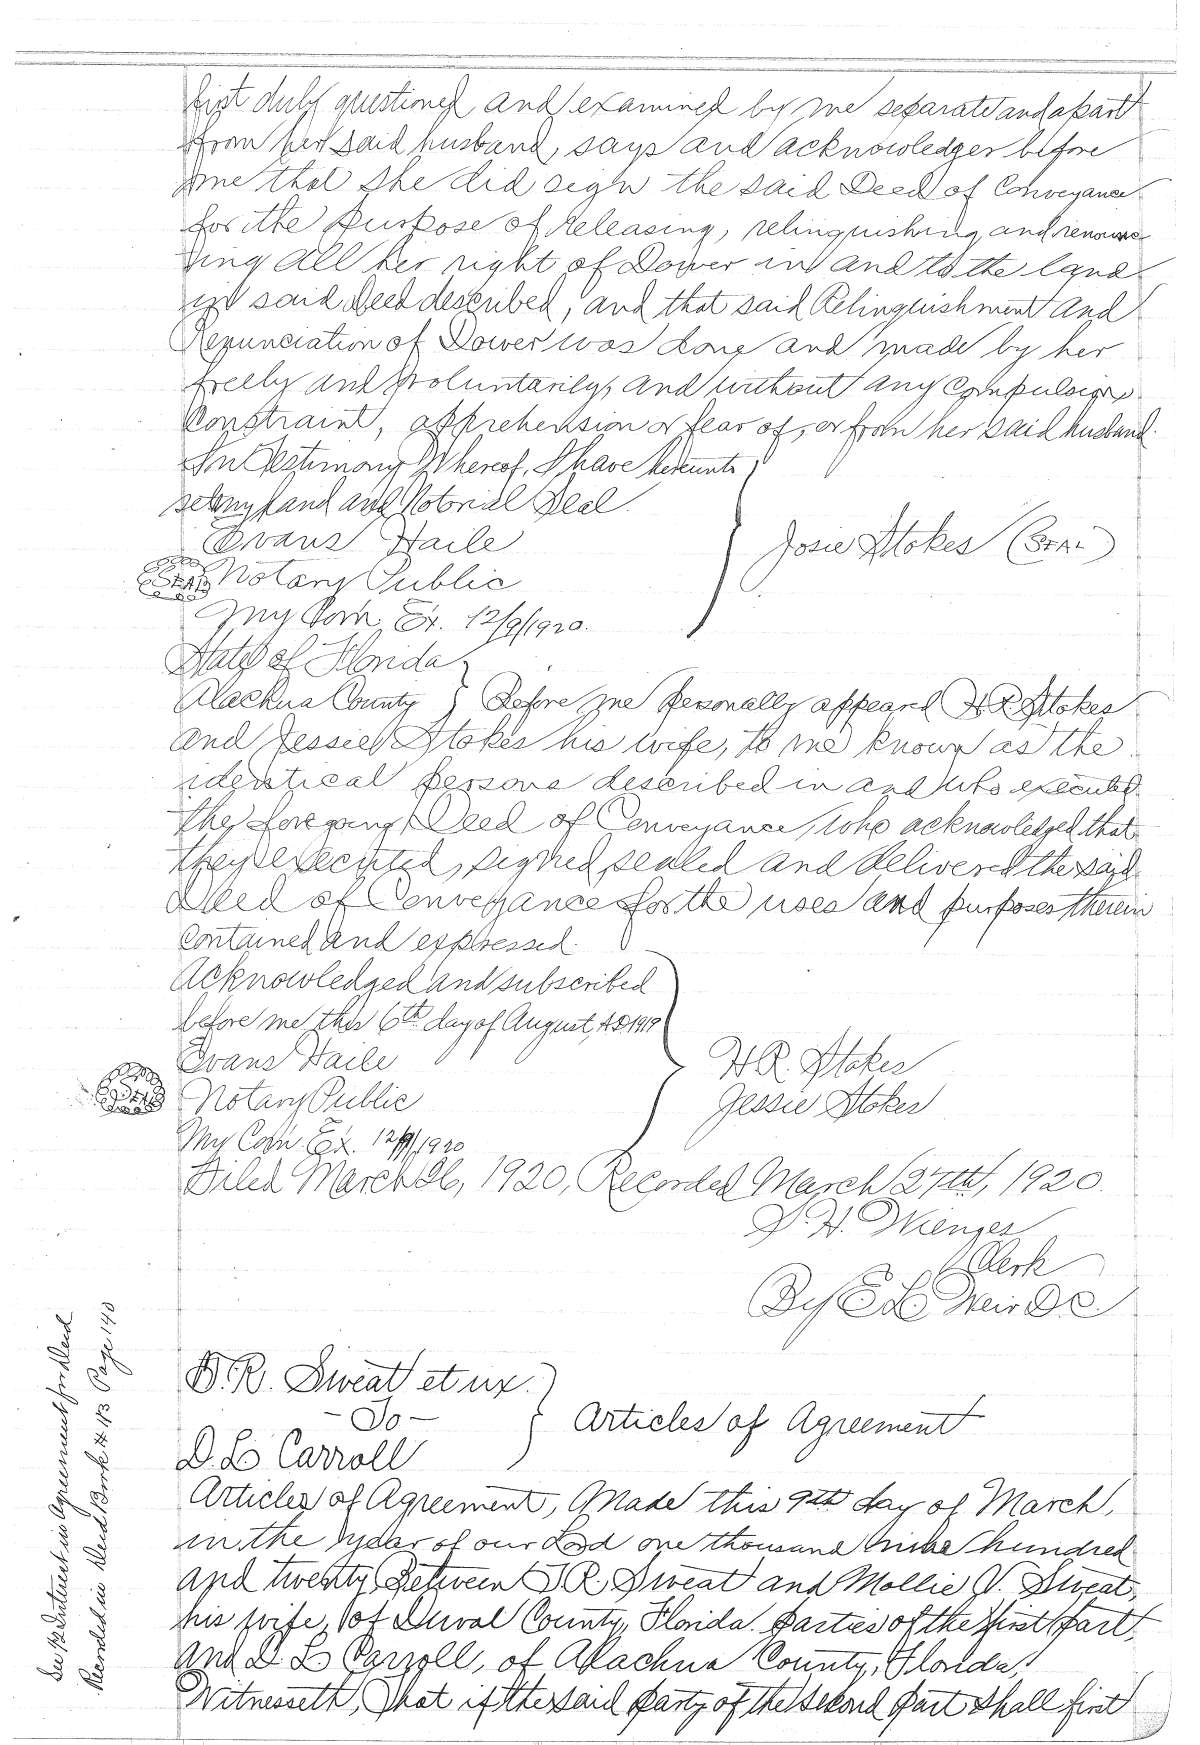 first duly questioned and examined by me separate and apart
from her said husband, says and acknowledges before
me that she did sign the said Deed of Conveyance
for the purpose of releasing, relinquishing and renounc
ing all her right of Dower in and to the land
in said Deed described, and that said Relinquishment and
Renunciation of Dower was done and made by her
freely and voluntarily, and without any compulsion
Constraint, apprehension or fear of, or from her said husband.
In Testimony Whereof, I have hereunto
set my hand and Notorial Seal.
Evans Haile
Josie Stokes (SEAL)
SEAL Notary Public
My Com Ex. 12/9/1920.
State of Florida
Alachua County } Before me personally appeard H.R. Stokes
and Jessie Stokes his wife, to me known as the
identical persons described in and who executed
the foregoing Deed of Conveyance, who acknowledged that
they executed, signed, sealed and delivered the said
Deed of Conveyance for the uses and purposes therein
contained and expressed.
Acknowledged and subscribed
before me this 6th day of August, A.D. 1919
Evans Haile
H.R. Stokes
SEAL Notary Public
Jessie Stokes
My Com Ex. 12/9/1920
Filed March 26, 1920, Recorded March 27th, 1920.
S. H. Wienges
Clerk
By E L Weir D.C.
See Interest in Agreement for Deed
Recorded in Deed Book # 113 Page 140
T.R. Sweat et ux.
- To -
Articles of Agreement
D. L Carroll
Articles of Agreement, Made this 9th day of March,
in the year of our Lord one thousand nine hundred
and twenty, Between T.R. Sweat and Mollie V. Sweat,
his wife, of Duval County, Florida. parties of the first part,
and D. L Carroll, of Alachua County, Florida,
Witnesseth, That if the said party of the second part shall first